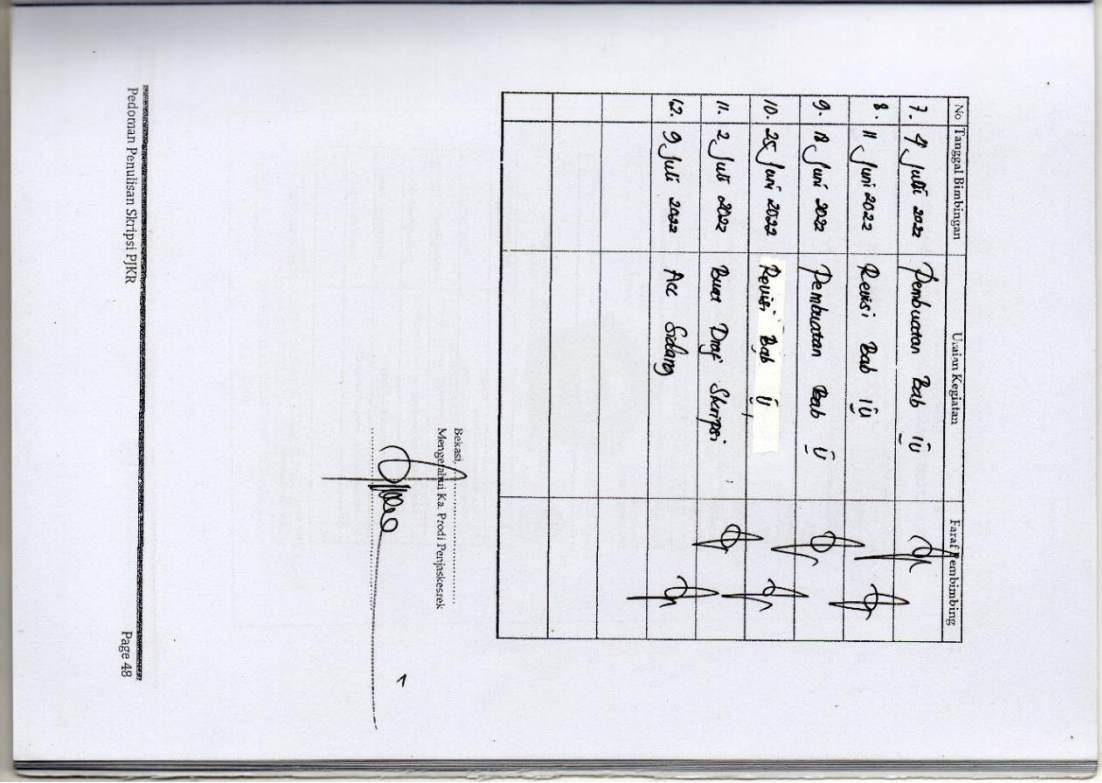 No Tanggal Bimbingan Uraian Kegiatan Faraf Pembimbing
7. 4 Juni 2022 Pembuatan Bab IV
8. 11 Juni 2022 Revisi Bab IV
9. 18 Juni 2022 Pembuatan Bab V
10. 25 Juni 2022 Revisi Bab V
11. 2 Juli 2022 Buat Draf Skripsi
12. 9 Juli 2022 Acc Sidang
Bekasi,
Mengetahui Ka. Prodi Penjaskesrek
Pedoman Penulisan Skripsi PJKR Page 48